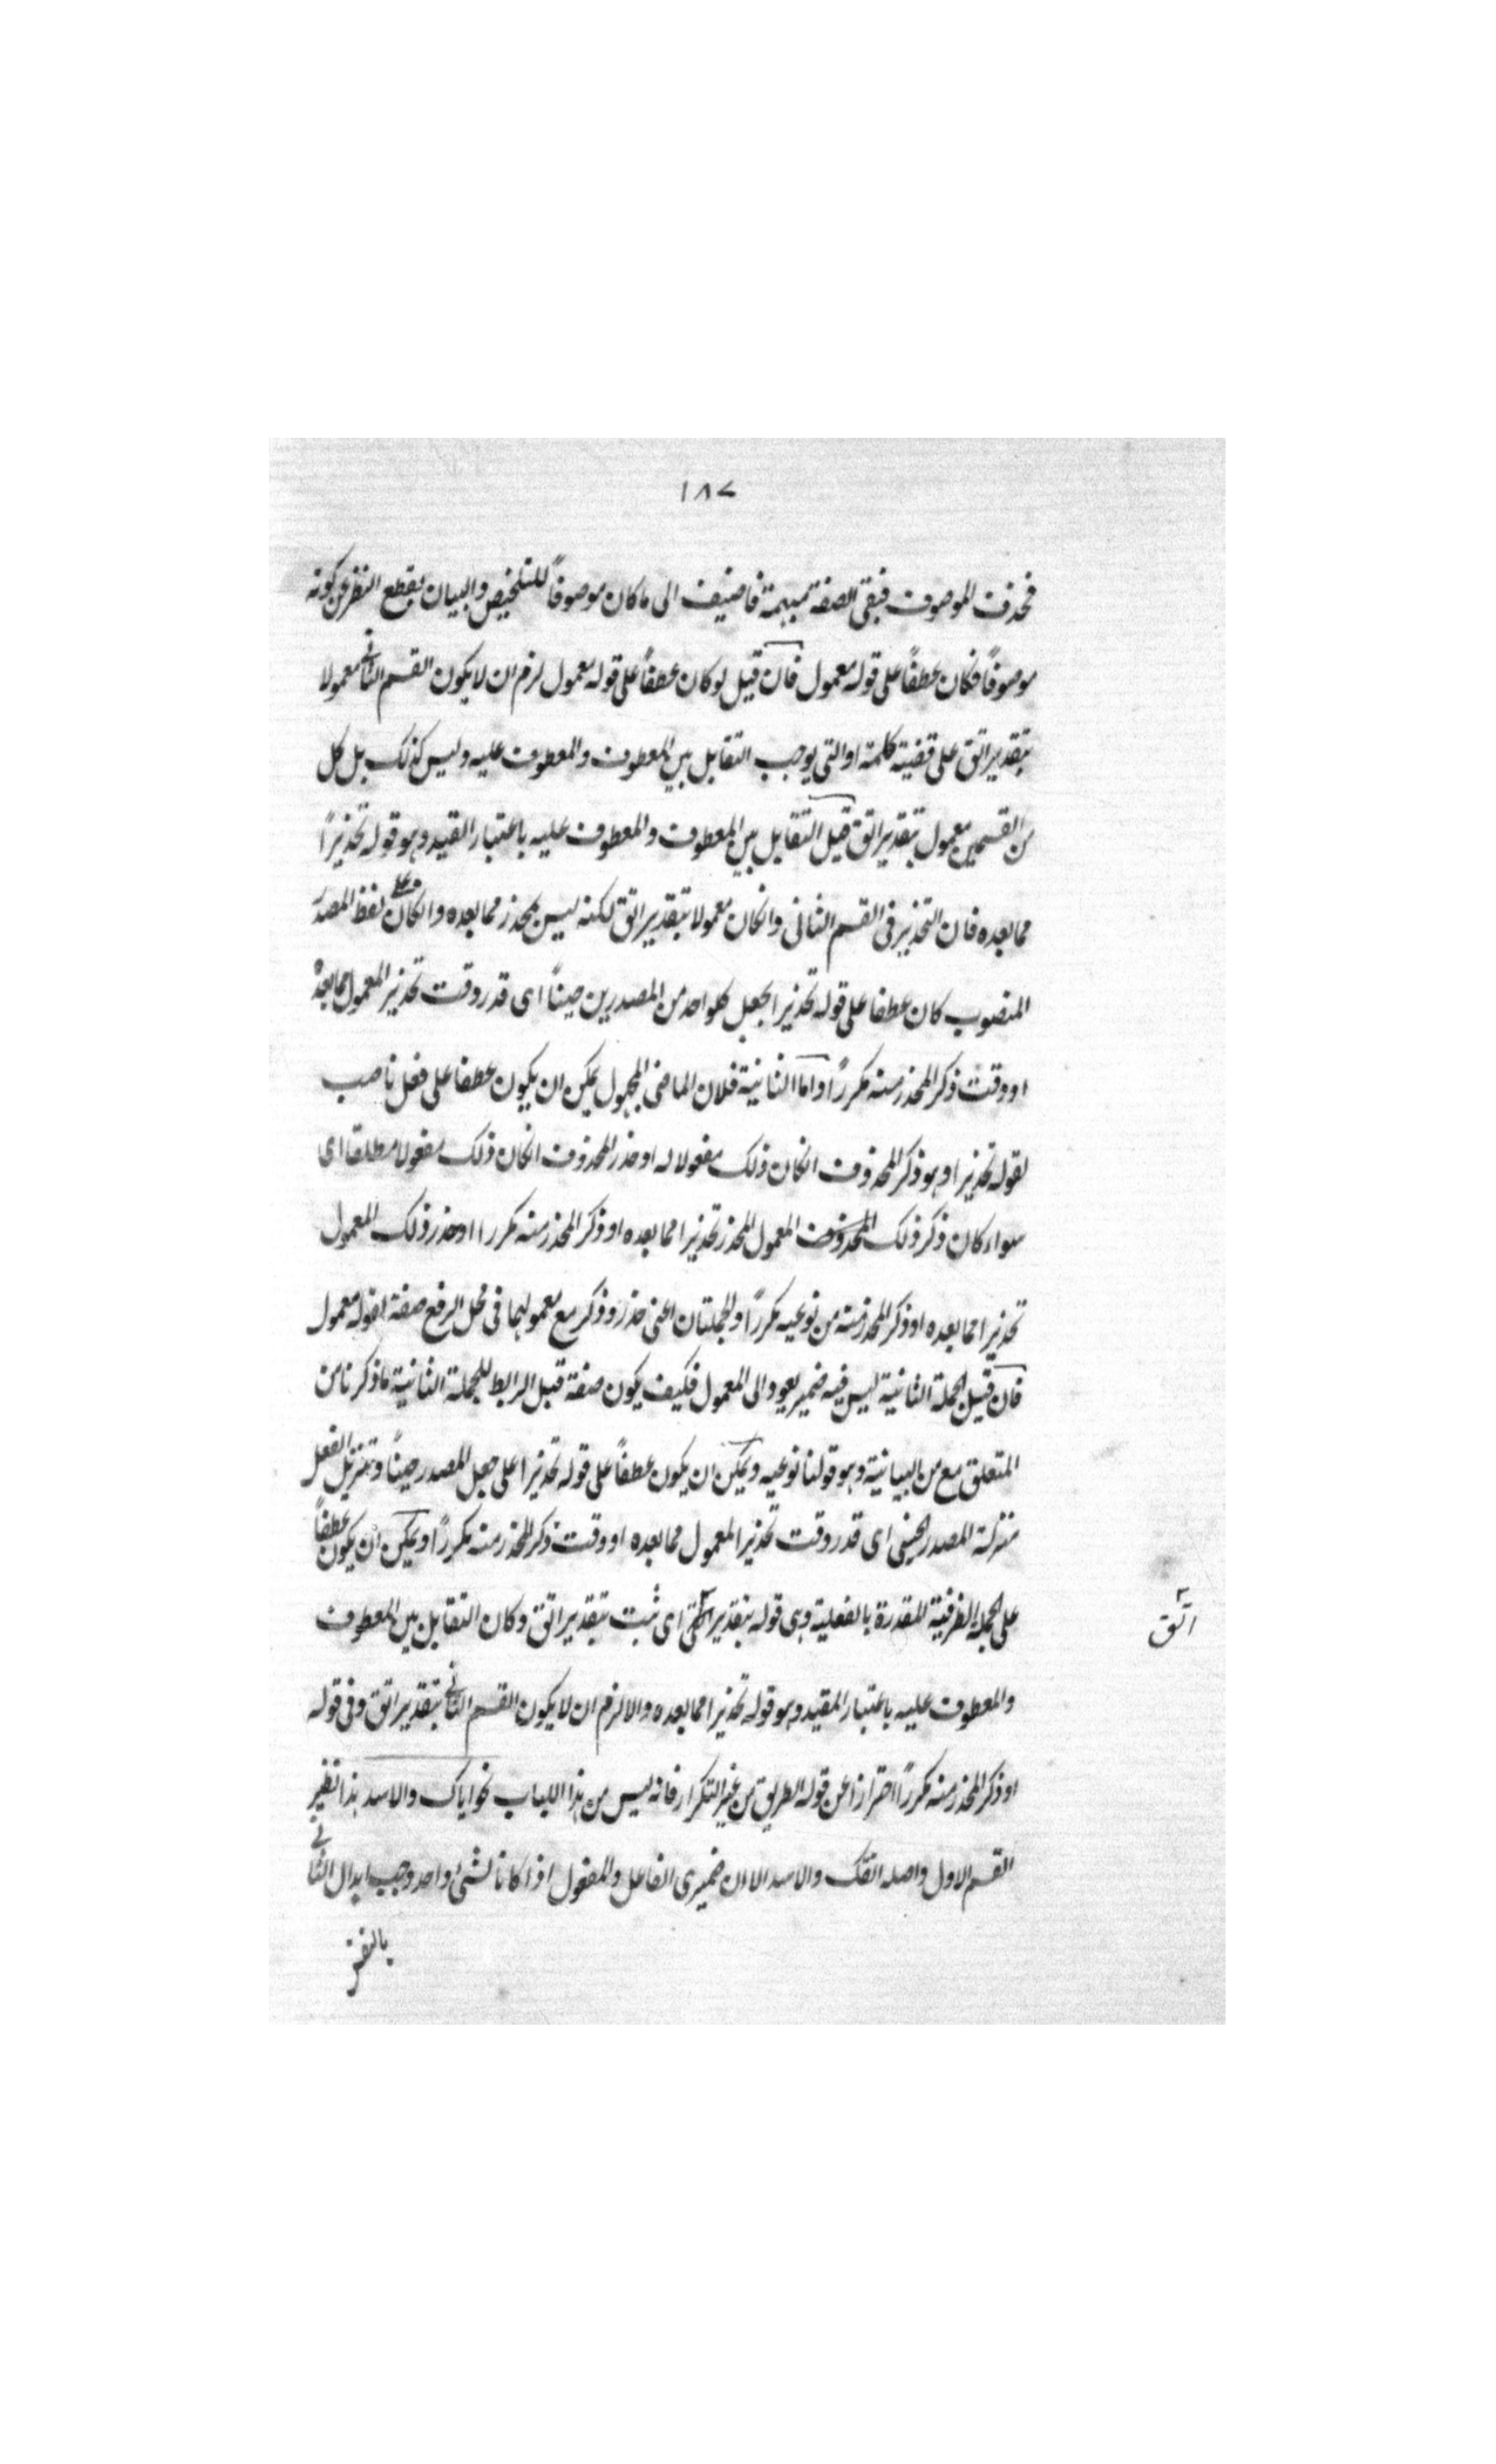 ١٨٧
فحذف الموصوف فبقى الصفة مبهمة فاضيف الى ما كان موصوفاً للتلخيص والبيان بقطع النظر عن كونه
موصوفاً فكان عطفاً على قوله معمول فان قيل لو كان عطفاً على قوله معمول لزم ان لا يكون القسم الثانى معمولا
بتقدير اتق على قضية كلمة او التى يوجب التقابل بين المعطوف والمعطوف عليه وليس كذلك بل كل
من القسمين معمول بتقدير اتق قيل التقابل بين المعطوف والمعطوف عليه باعتبار القيد وهو قوله تحذيراً
مما بعده فان التحذير فى القسم الثانى وانكان معمولا بتقدير اتق لكنه ليس بمحذر مما بعده وانكان على لفظ المصدر
المنصوب كان عطفا على قوله تحذيرا بجعل كلواحد من المصدرين حيناً اى قدر وقت تحذير المعمول مما بعده
او وقت ذكر المحذر منه مكرراً واما الثانية فلان الماضى المجهول يمكن ان يكون عطفا على فعل ناصب
لقوله تحذيرا وهو ذكر المحذوف انكان ذلك مفعولا له او حذر المحذوف انكان ذلك مفعولا مطلقا اى
سواء كان ذكر ذلك المحذوف المعمول المحذر تحذيرا مما بعده او ذكر المحذر منه مكررا او حذر ذلك المعمول
تحذيرا مما بعده او ذكر المحذر منه من نوعيه مكرراً والجملتان اعنى حذر وذكر مع معموليهما فى محل الرفع صفة لقوله معمول
فان قيل الجملة الثانية ليس فيه ضمير يعود الى المعمول فكيف يكون صفة قيل الرابط للجملة الثانية ما ذكرنا من
المتعلق مع من البيانية وهو قولنا نوعيه ويمكن ان يكون عطفاً على قوله تحذيرا على جعل المصدر حيناً وتنزيل الفعل
منزلة المصدر الحينى اى قدر وقت تحذير المعمول مما بعده او وقت ذكر المحذر منه مكرراً ويمكن ان يكون عطفاً
على الجملة الظرفية المقدرة بالفعلية وهى قوله بتقدير اى ثبت بتقدير اتق وكان التقابل بين المعطوف
اتق
والمعطوف عليه باعتبار المقيد وهو قوله تحذيرا مما بعده والا لزم ان لا يكون القسم الثانى بتقدير اتق وفى قوله
او ذكر المحذر منه مكرراً احترازا عن قوله الطريق من غير التكرار فانه ليس من هذا الباب نحو اياك والاسد هذا نظير
القسم الاول واصله اتقك والاسد الا ان ضميرى الفاعل والمفعول اذا كانا لشئ واحد وجب ابدال الثانى
بالنفس